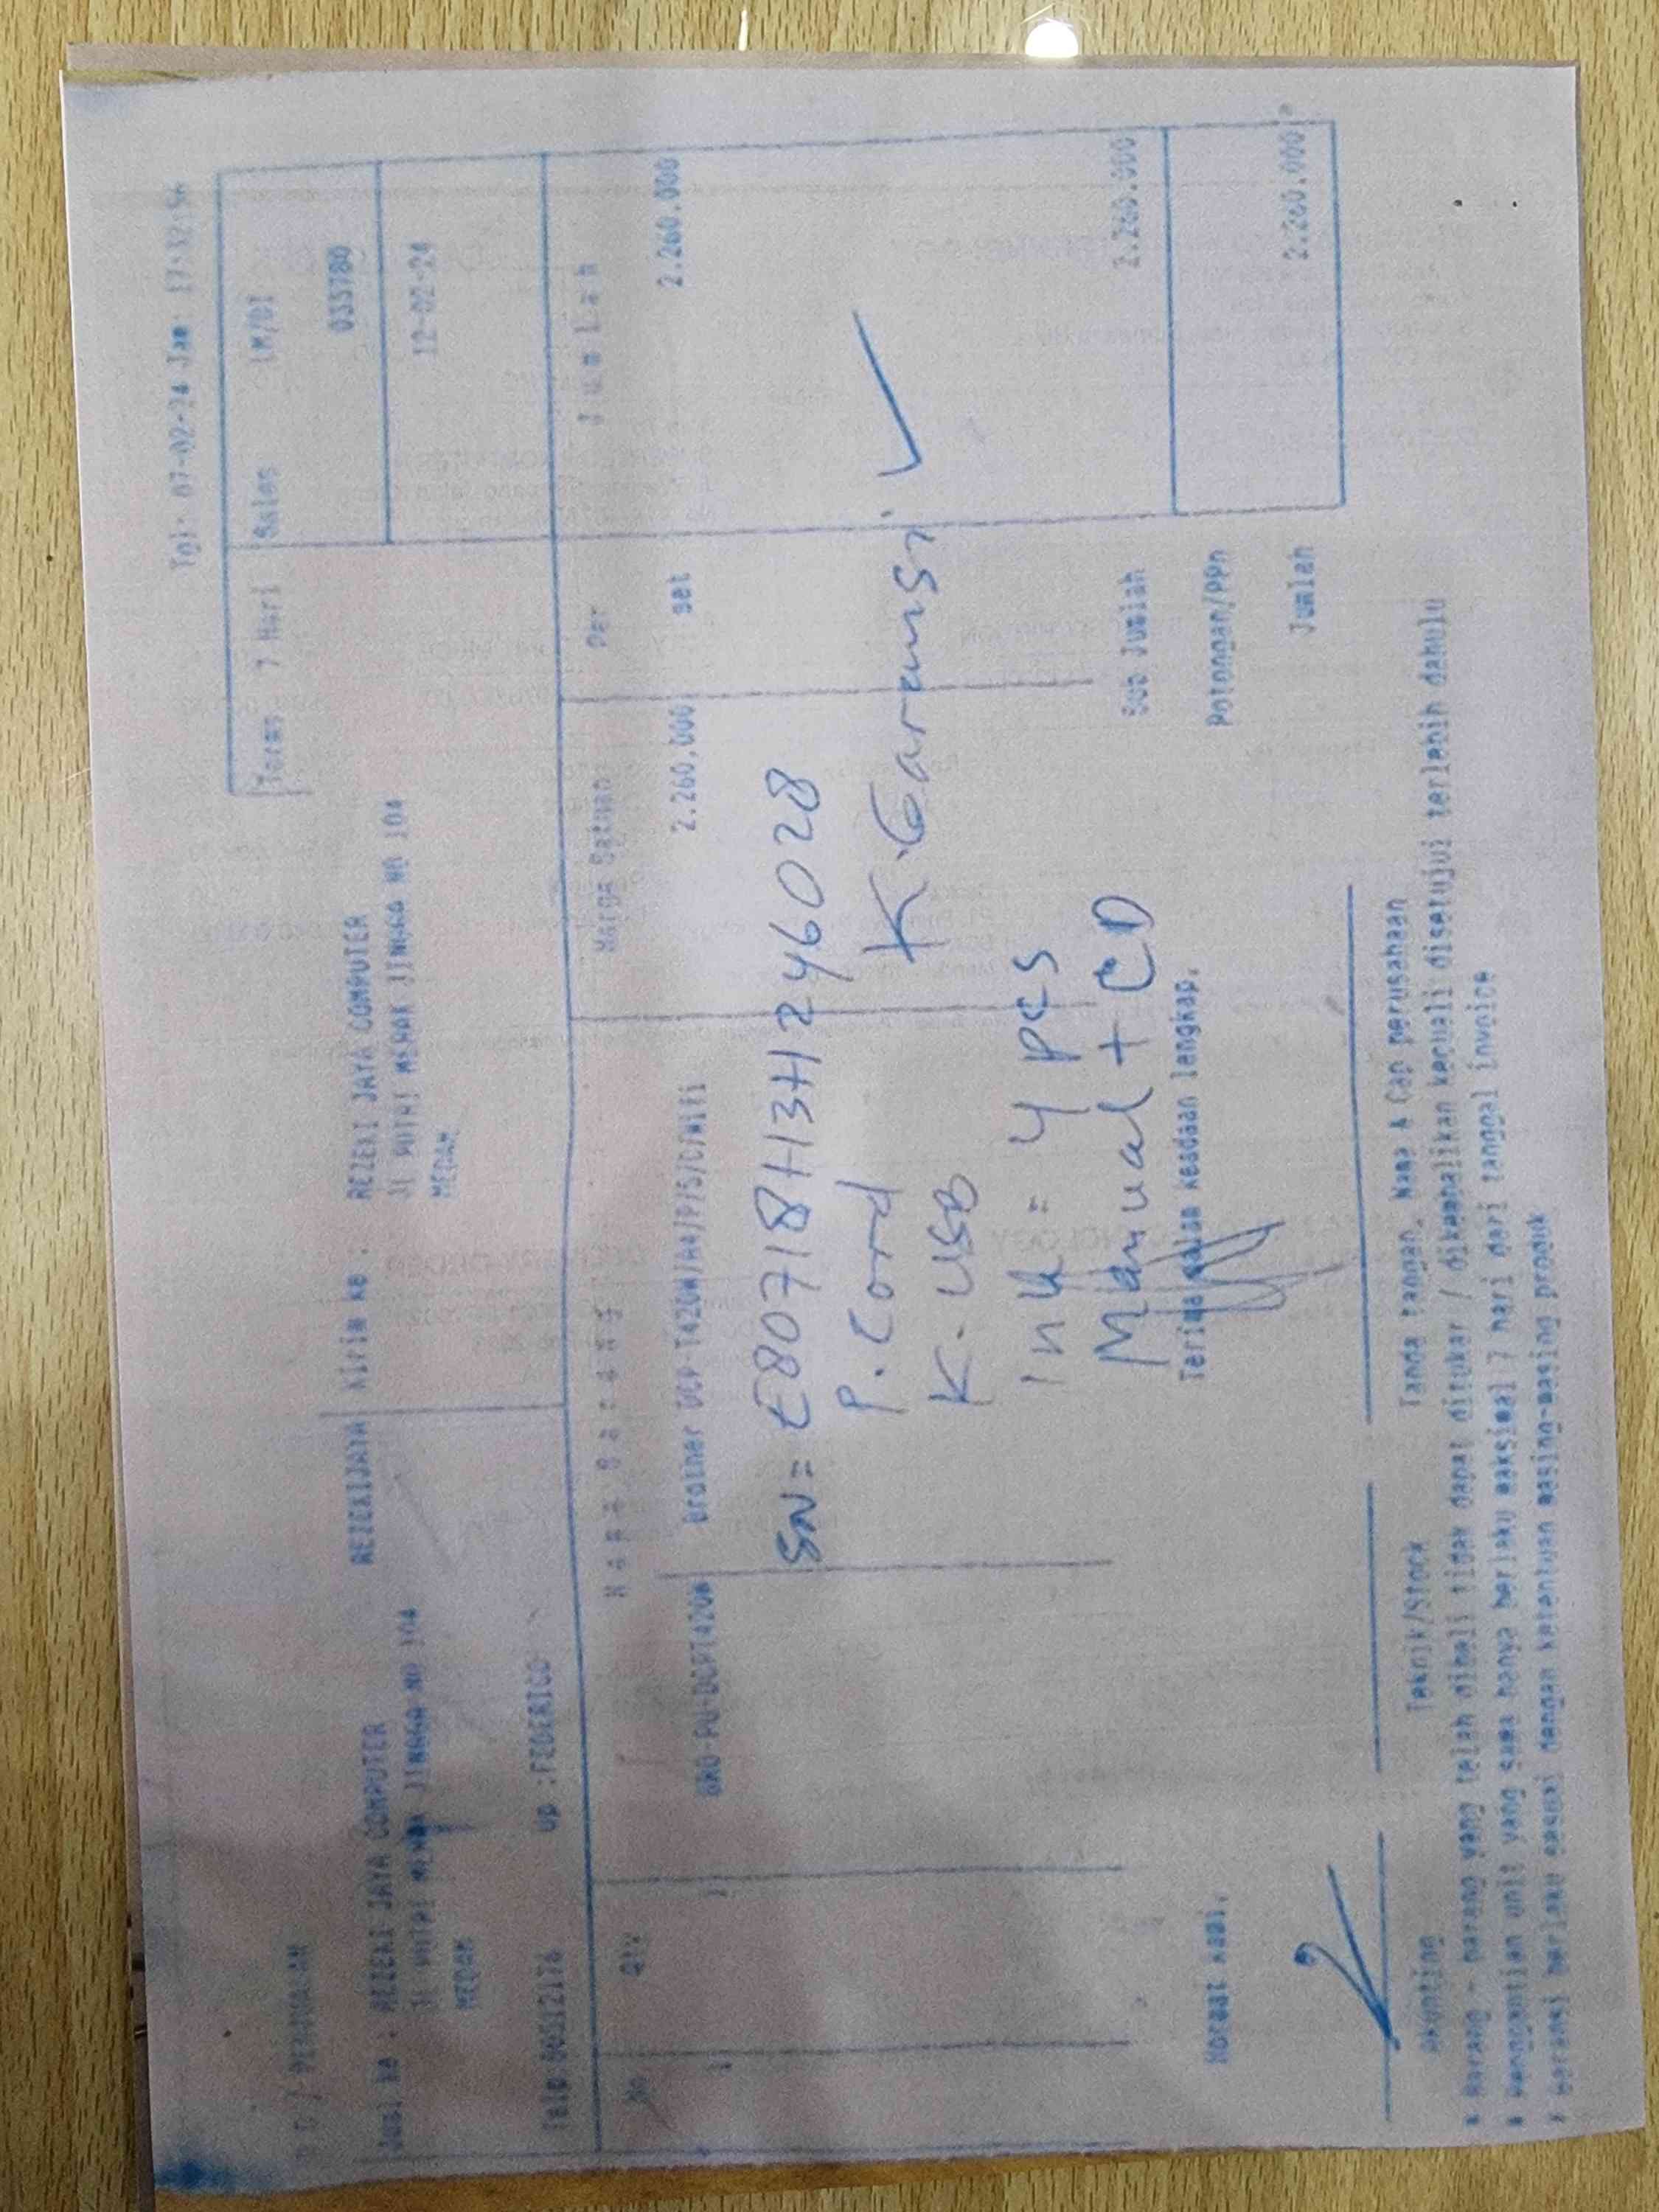 Tgl: 07-02-24 Jam: 17:32:56
/ PENJUALAN
Terms. 7 Hari Sales LM/DI
035780
12-02-24
Jual ke : REZEKI JAYA COMPUTER
Jl PUTRI MERAK JINGGA NO 10A
MEDAN
REZEKIJAYA Kirim ke : REZEKI JAYA COMPUTER
Jl PUTRI MERAK JINGGA NO 10A
MEDAN
up :FEDERICO
No Qty Nama Barang Harga Satuan Per Jumlah
1 1 BRO-PU-DCPT420W Brother DCP-T420W/A4/P/S/C/Wifi 2.260.000 set 2.260.000
SN = E80718H13H1246028
P. Cord
K. Garansi
K. USB
Ink = 4 pcs
Manual + CD
Sub Jumlah 2.260.000
Hormat kami, Terima dalam keadaan lengkap,
Potongan/PPn
Jumlah 2.260.000
Akunting Teknik/Stock Tanda tangan, Nama & Cap perusahaan
* Barang - barang yang telah dibeli tidak dapat ditukar / dikembalikan kecuali disetujui terlebih dahulu
* Penggantian unit yang sama hanya berlaku maksimal 7 hari dari tanggal invoice
* Garansi berlaku sesuai dengan ketentuan masing-masing produk